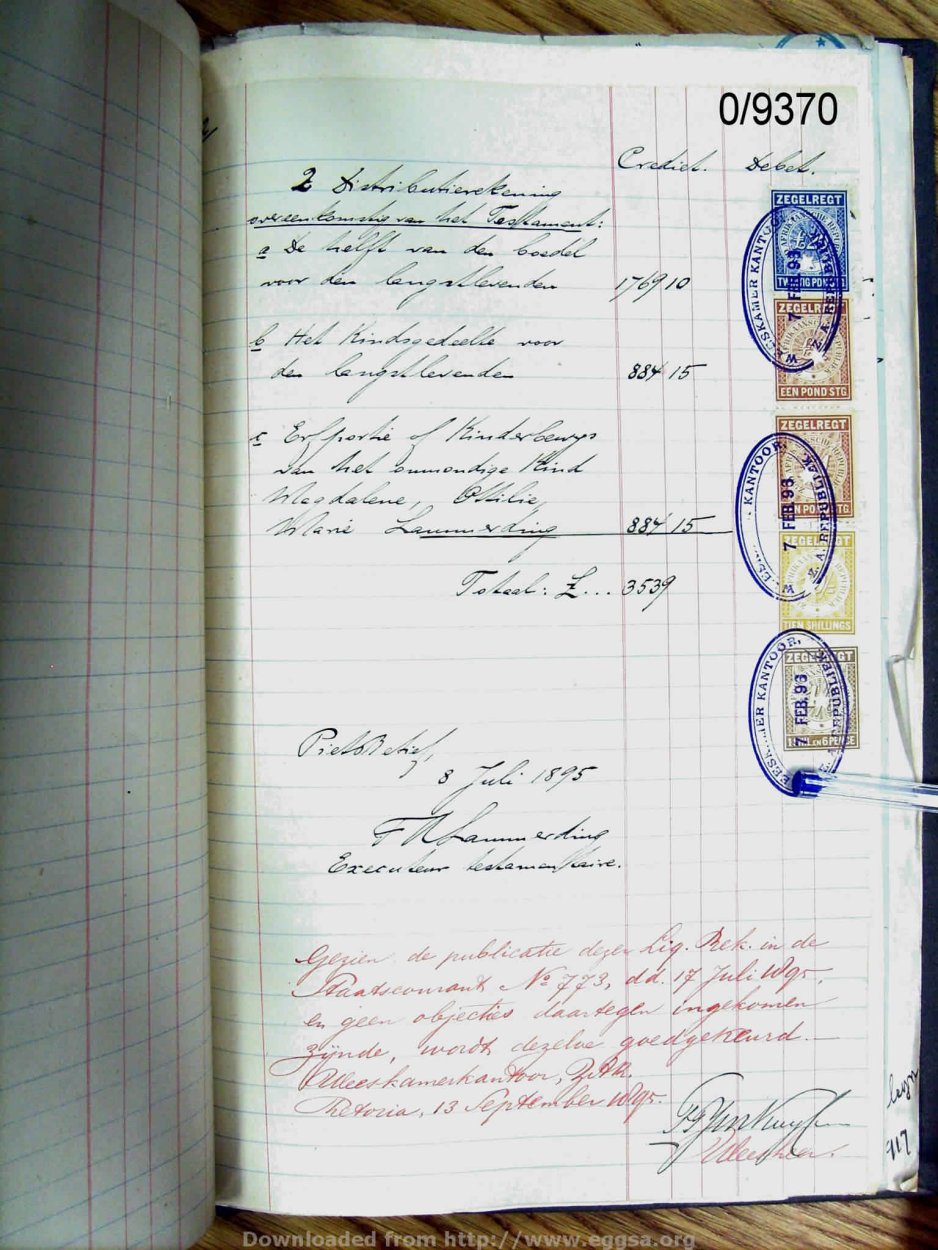 0/9370
Crediet. Debet.
2 Distributierekening
overeenkomstig van het Testament:
a De helft van den boedel
voor den langstlevenden 1769 10
b Het Kindsgedeelte voor
den langstlevenden 884 15
c Erfportie of Kinderbewys
van het onmondige Kind
Magdalene, Ottilie,
Marie Lammerding 884 15
Totaal: £... 3539
ZEGELREGT
TWINTIG POND STG
ZEGELREGT
EEN POND STG
ZEGELREGT
EEN POND STG
ZEGELREGT
TIEN SHILLINGS
ZEGELREGT
6 PENCE
WEESKAMER KANTOOR, Z. A. REPUBLIEK
7 FEB. 93
WEESKAMER KANTOOR, Z. A. REPUBLIEK
7 FEB. 93
WEESKAMER KANTOOR, Z. A. REPUBLIEK
7 FEB. 93
Piet Retief,
8 Juli 1895
Lammerding
Executeur testamentaire.
Gezien de publicatie dezer Liq. Rek. in de
Staatscourant No 773, dd. 17 Juli 1895,
en geen objecties daartegen ingekomen
zijnde, wordt dezelve goedgekeurd.
Weeskamerkantoor, Z.A.R.
Pretoria, 13 September 1895.
Weesheer.
917
Downloaded from http://www.eggsa.org